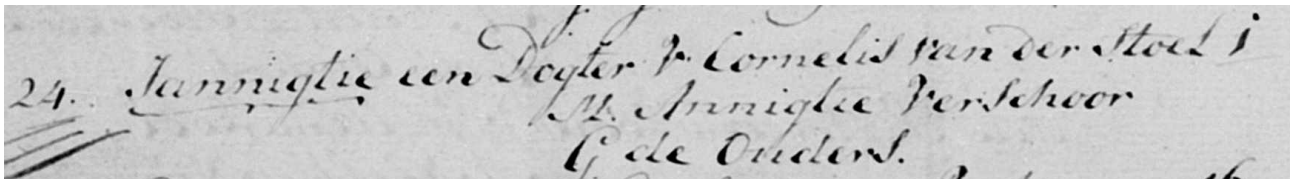 24. Jannigtie een Dogter V. Cornelis van der Stoel 1
M. Annigtie Verschoor
G de Ouders.